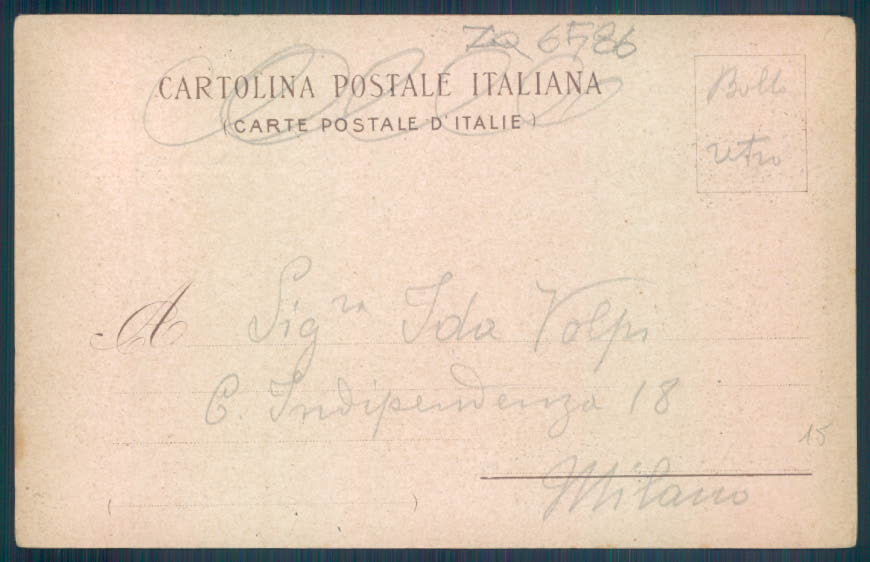 ZQ 6586
CARTOLINA POSTALE ITALIANA
(CARTE POSTALE D'ITALIE)
Bollo
retro
A Sigra Ida Volpi
C. Indipendenza 18
15
Milano
( )